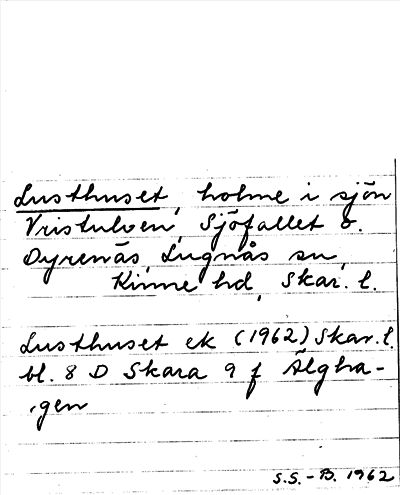 Lusthuset, holme i sjön
Vristulven, Sjöfallet o.
Dyrenäs, Lugnås sn,
Kinne hd, Skar. l.
Lusthuset ek (1962) Skar. l.
bl. 8 D Skara 9 f Älgha-
gen
S.S.-B. 1962